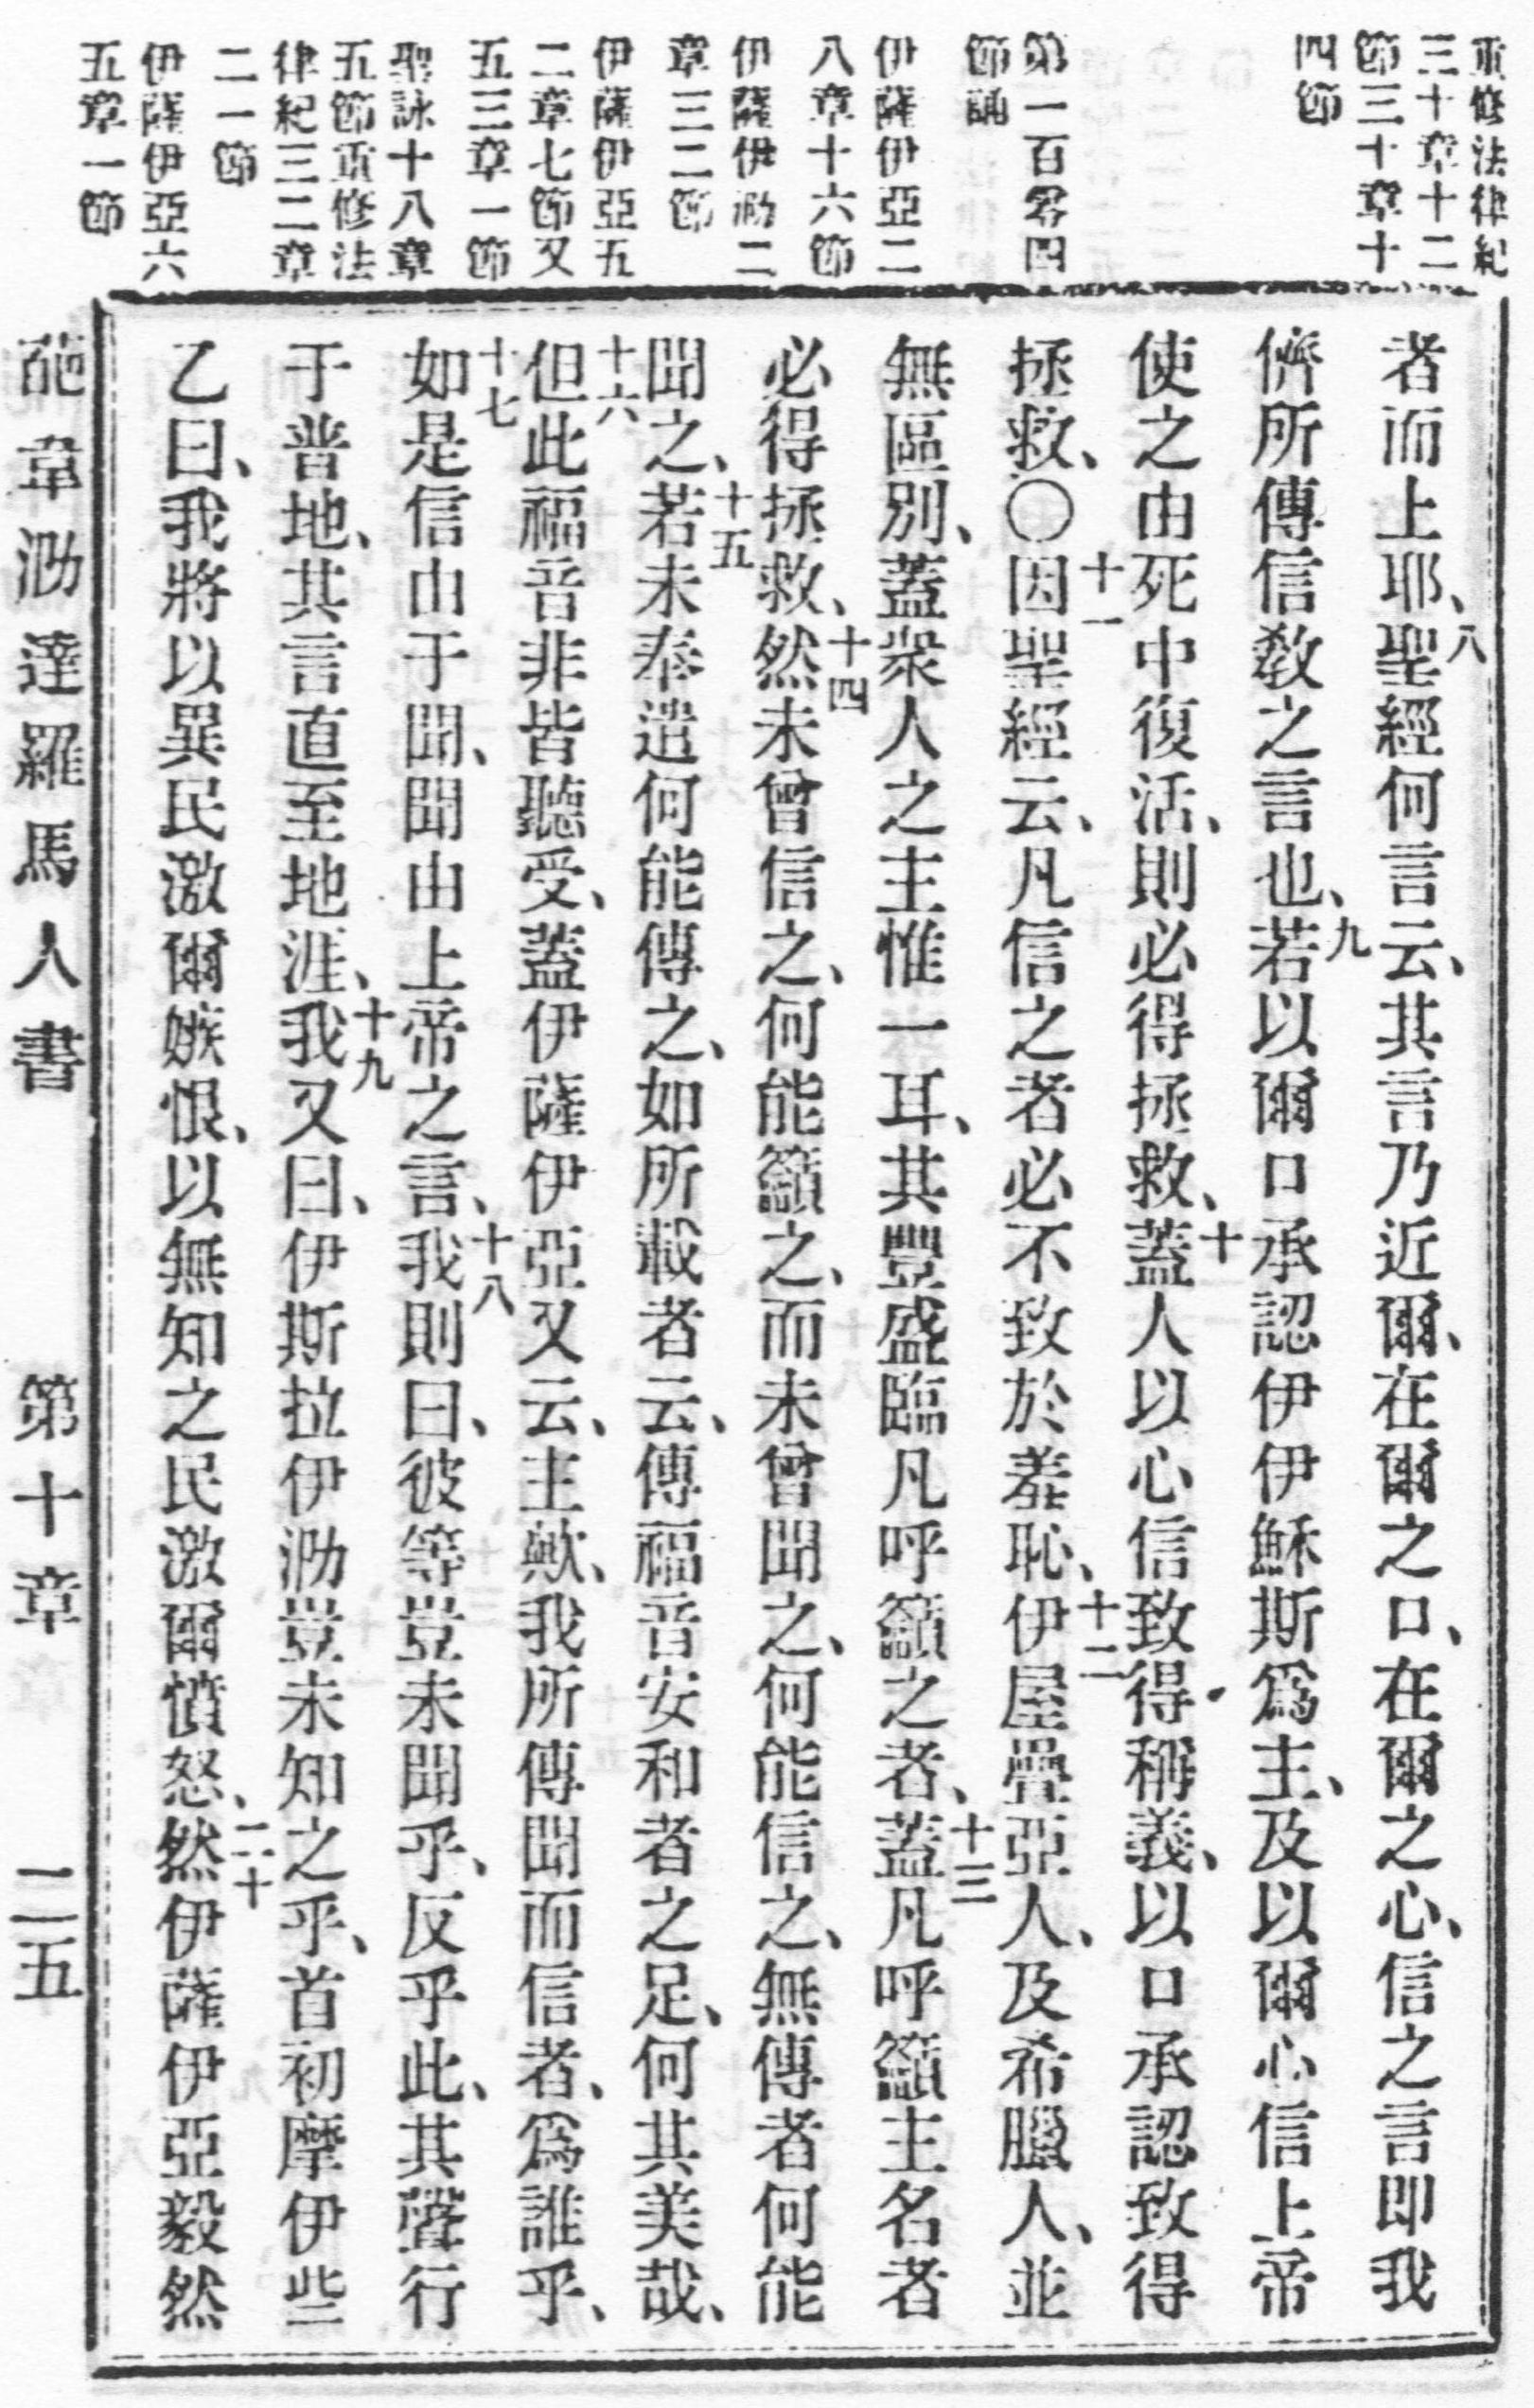 重修法律紀
三十章十二
節三十章十
四節
第一百零四
節誦
伊薩伊亞二
八章十六節
伊薩伊泐二
章三二節
伊薩伊亞五
二章七節又
五三章一節
聖詠十八章
五節重修法
律紀三二章
二一節
伊薩伊亞六
五章一節
者而上耶、八聖經何言云、其言乃近爾、在爾之口、在爾之心、信之言即我
儕所傳信敎之言也、九若以爾口承認伊伊穌斯爲主、及以爾心信上帝
使之由死中復活、則必得拯救、十蓋人以心信致得稱義、以口承認致得
拯救、〇十一因聖經云、凡信之者必不致於羞恥、十二伊屋疊亞人、及希臘人、並
無區別、蓋衆人之主惟一耳、其豐盛臨凡呼籲之者、十三蓋凡呼籲主名者
必得拯救、十四然未曾信之、何能籲之、而未曾聞之、何能信之、無傳者何能
聞之、十五若未奉遣何能傳之、如所載者云、傳福音安和者之足、何其美哉、
十六但此福音非皆聽受、蓋伊薩伊亞又云、主歟、我所傳聞而信者、爲誰乎、
十七如是信由于聞、聞由上帝之言、十八我則曰、彼等豈未聞乎、反乎此、其聲行
于普地、其言直至地涯、十九我又曰、伊斯拉伊泐豈未知之乎、首初摩伊些
乙曰、我將以異民激爾嫉恨、以無知之民激爾憤怒、二十然伊薩伊亞毅然
葩韋泐達羅馬人書 第十章 二五